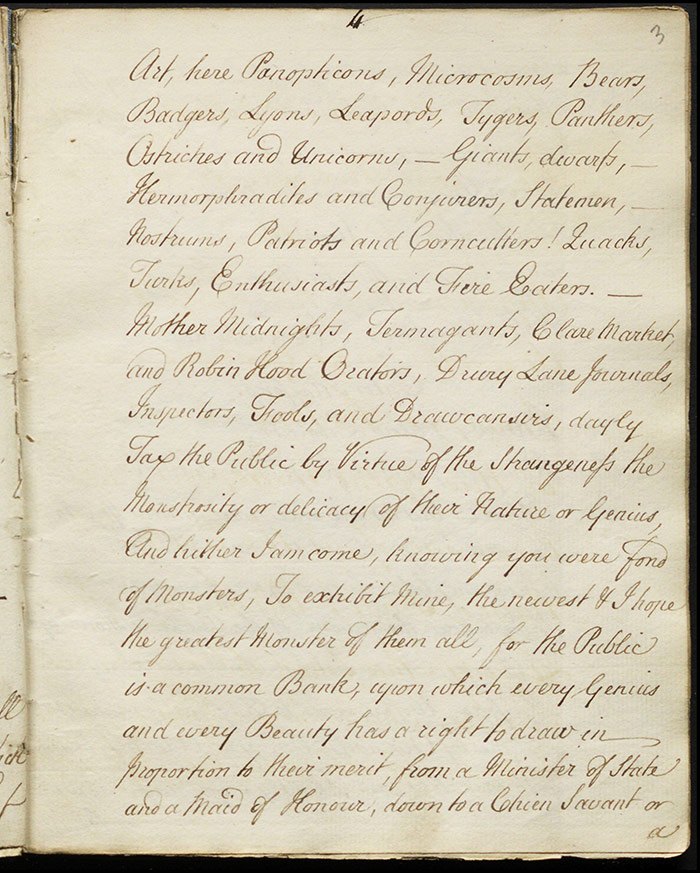 4
3
Art, here Panopticons, Microcosms, Bears,
Badgers, Lyons, Leapords, Tygers, Panthers,
Ostriches and Unicorns, — Giants, dwarfs, —
Hermorphradites and Conjurers, Statemen, —
Nostrums, Patriots and Corncutters! Quacks,
Turks, Enthusiasts, and Fire Eaters. —
Mother Midnights, Termagants, Clare Market,
and Robin Hood Orators, Drury Lane Journals,
Inspectors, Fools, and Drawcansirs, dayly
Tax the Public by Virtue of the Strangeness the
Monstrosity or delicacy of their Nature or Genius,
And hither I am come, knowing you were fond
of Monsters, To exhibit Mine, the newest & I hope
the greatest Monster of them all, for the Public
is a common Bank, upon which every Genius
and every Beauty has a right to draw in
proportion to their merit, from a Minister of State
and a Maid of Honour, down to a Chien Savant or
a